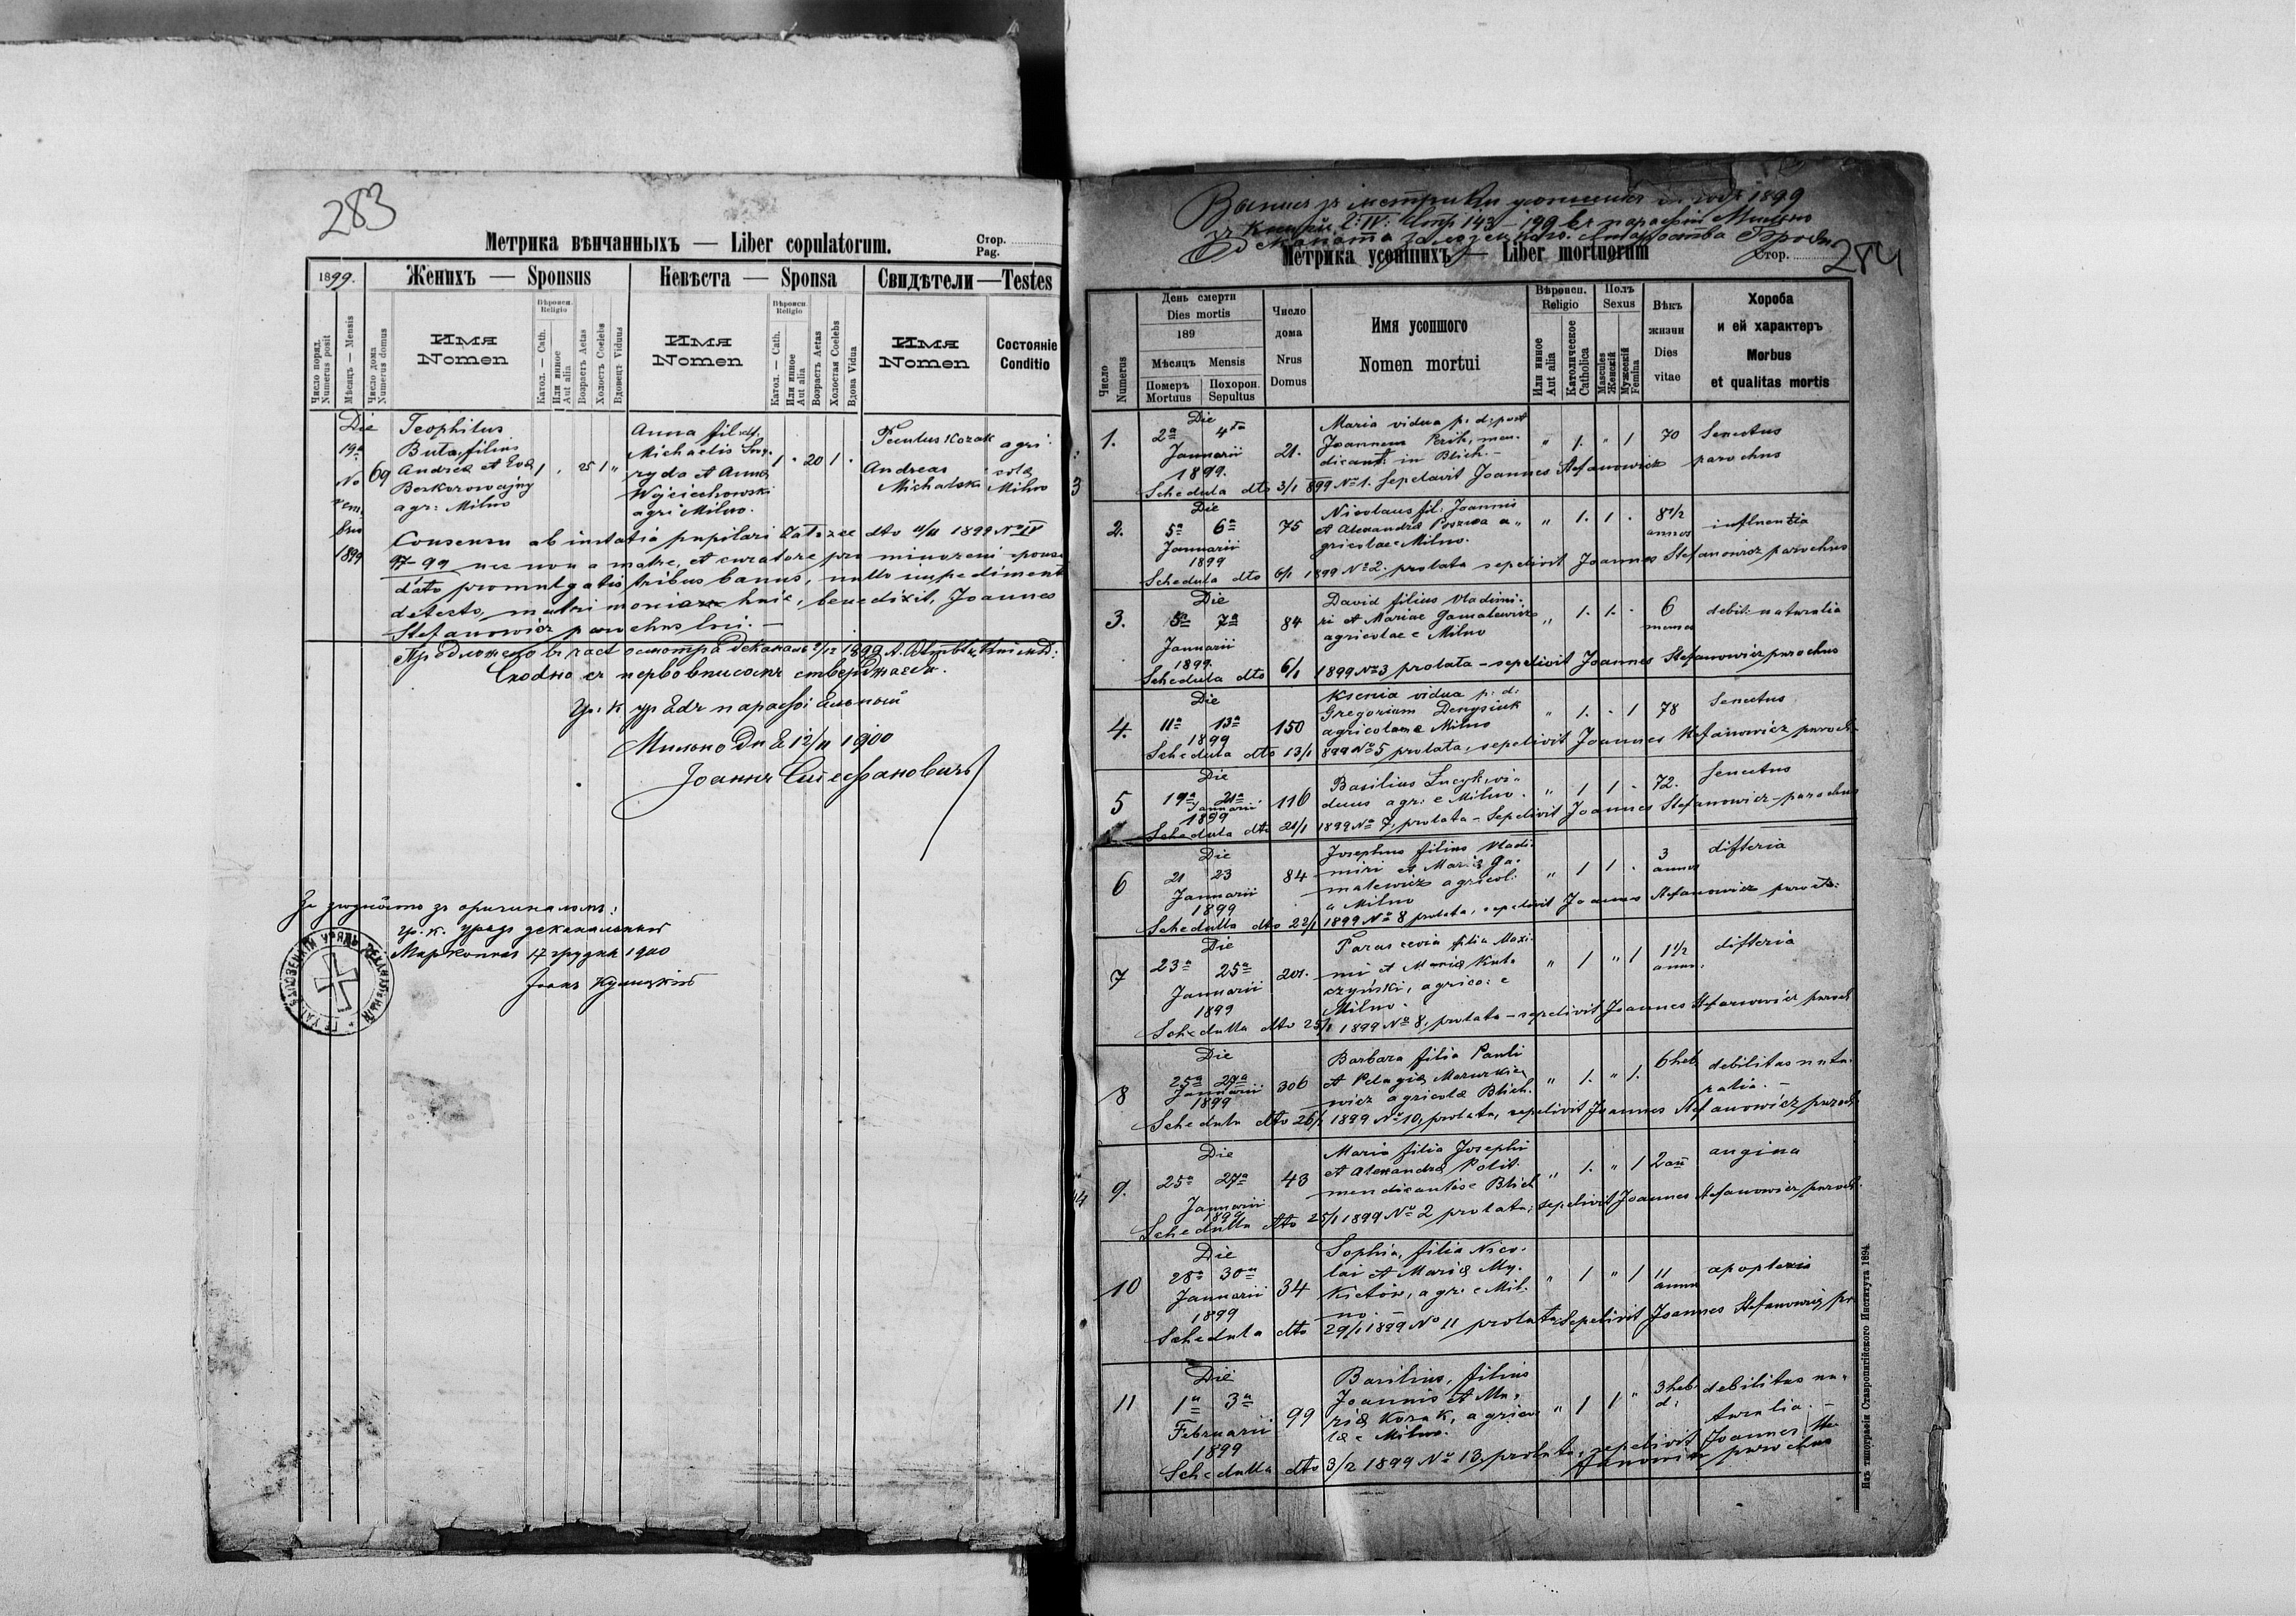 283
Метрика вѣнчанныхъ — Liber copulatorum.
Стор.
Pag.
1899.
Женихъ — Sponsus
Невѣста — Sponsa
Свидѣтели — Testes
Число поряд.
Numerus posit
Мѣсяцъ — Mensis
Число дома
Numerus domus
Имя
Nomen
Вѣроисп.
Religio
Катол. — Cath.
Или инное
Aut alia
Возрастъ Aetas
Холостъ Coelebs
Вдовецъ Viduus
Имя
Nomen
Вѣроисп.
Religio
Катол. — Cath.
Или инное
Aut alia
Возрастъ Aetas
Холостая Coelebs
Вдова Vidua
Имя
Nomen
Состояніе
Conditio
Die
19a
No
vem
bris
1899
69
Teophilus
Buta, filius
Andreae et Eva
Berkorowajny
agr: Milno
1 . 25 1 "
Anna fil.
Michaelis
ryda et Anna
Wojciechowski
agri Milno.
1 . 20 1 .
Kozak
Andreas
Michalsk
agri
cola
Milno
Consensu ab instatia pupilari dto 1899 No IV
97-99 nec non a matre, et curatore pro minoreni sponsa
dato promulgatis tribus bannis, nullo impediment
detecto, matrimonia huic, benedixit, Joannes
Stefanowicz parochus loci. —
Сходно съ первовписомъ стверджаесь.
Гр. к. урядъ парафіяльный
Мильно дня 12/11 1900
Іоаннъ Стефановичъ
За згодность зъ оригиналомъ:
гр. к. урядъ деканальный
Маркополь 17 грудня 1900
284
Выписъ зъ метрики усопшихъ за годъ 1899
Метрика усопшихъ — Liber mortuorum
Стор.
Число
Numerus
День смерти
Dies mortis
189
Мѣсяцъ Mensis
Померъ
Mortuus
Похорон.
Sepultus
Число
дома
Nrus
Domus
Имя усопшого
Nomen mortui
Вѣроисп.
Religio
Или инное
Aut alia
Католическое
Catholica
Полъ
Sexus
Masculus
Женскій
Мужескій
Femina
Вѣкъ
жизни
Dies
vitae
Хороба
и ей характеръ
Morbus
et qualitas mortis
1.
Die
2a 4ta
Januarii
1899.
21.
Maria vidua p: d: post
Joannem Perih, men-
dicant: in Blich. —
" 1. " 1 70 Senectus
Schedula dto 3/1 899 No 1. Sepelavit Joannes Stefanowicz parochus
2.
Die
5a 6a
Januarii
1899
75
Nicolaus fil: Joannis
et Alexandra Poszwa a"
gricolae e Milno.
" 1. 1 . 8 1/2
annos
influentia
Schedula dto 6/1 1899 No 2. prolata sepelivit Joannes Stefanowicz parochus
3.
Die
5a 7a
Januarii
1899.
84
David filius Vladimi-
ri et Mariae Gamalewicz
agricolae e Milno
" 1. 1. . 6
menses
debit: naturalia
Schedula dto 6/1 1899 No 3, prolata – sepelivit Joannes Stefanowicz parochus
4.
Die
11a 13a
1899
150
Ksenia vidua p: d:
Gregorium Denysiuk
agricolam e Milno
" 1. . 1 78 Senectus
Schedula dto 13/1 899 No 5 prolata, sepelivit Joannes Stefanowicz paroch
5
Die
19a 21a
Januarii
1899
116
Basilius Lucyk, vi"
duus agr: e Milno.
" 1 1 . 72. Senectus
Schedula dto 21/1 1899 No 7, prolata – Sepelivit Joannes Stefanowicz – parochus
6
Die
21 23
Januarii
1899
84
Josephus filius Vladi-
miri et Maria Ga-
malewicz agricol:
e Milno
" 1 1 . 3
annos
difteria
Schedulla dto 22/1 1899 No 8 prolata, sepelivit Joannes Stefanowicz paroch:
7
Die
23a 25a
Januarii
1899
201.
Parascevia filia Maxi-
mi et Maria Kuta
czyński, agrico: e
Milno.
" 1 " 1 1 1/2
annu.
difteria
Schedulla dto 25/1 1899 No 8, prolata – sepelivit Joannes Stefanowicz paroch
8
Die
25a 27a
Januarii
1899
306
Barbara filia Pauli
et Pelagia Mazurkie
wicz agricola Blich.
" 1. " 1. 6 heb. debilitas natu-
ralia. —
Schedula dto 26/1 1899 No 10, prolata, sepelivit Joannes Stefanowicz paroch
9.
Die
25a 27a
Januarii
1899
43
Maria filia Josephi
et Alexandra Polit.
mendicantis e Blich
" 1. " 1 2 an angina
Schedulla dto 25/1 1899 No 2 prolata; sepelivit Joannes Stefanowicz paroch.
10
Die
28a 30a
Januarii
1899
34
Sophia, filia Nico-
lai et Maria My-
kietów, agr: e Mil-
no. —
" 1 " 1 11
annu
apoplexis
Schedula dto 29/1 1899 No 11 prolata sepelivit Joannes Stefanowicz, pa
11
Die
1a 3a
Februarii
1899
99
Basilius, filius
Joannis et Ma-
ria Kozak, agrico
la e Milno.
" 1 1 " 3 heb.
d:
debilitas na-
turalia. —
Schedulla dto 3/2 1899 No 13, prolata, sepelivit Joannes Ste-
fanowicz parochus
Изъ типографіи Ставропигійского Института 1894.